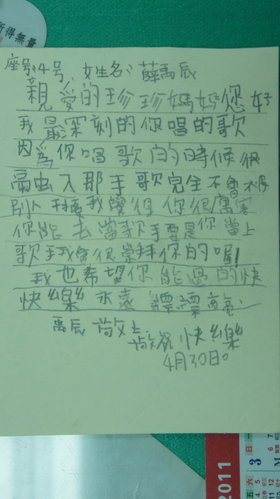 得無量
座号:4号, 女生名:薛禹辰
親愛的珍珍媽媽您好
我最深刻的你唱的歌
因為你唱歌的時候很
融入那手歌完全不會
我覺得你很厲害
你能去當歌手要是你當上
歌手我會很崇拜你的喔!
我也希望你能過的快
快樂永遠漂漂亮亮。
禹辰 敬上
敬祝 快樂
4月30日。
2011
3